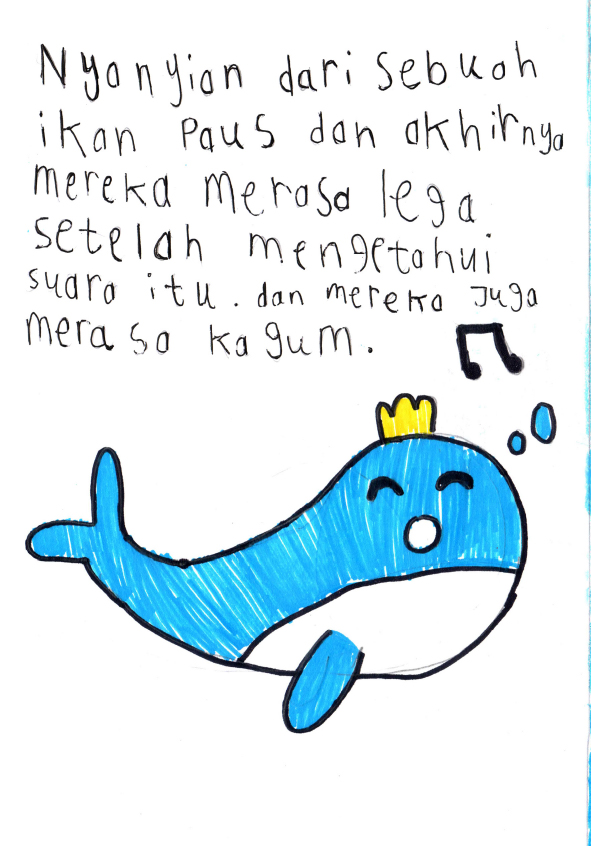 Nyanyian dari sebuah
ikan paus dan akhirnya
mereka merasa lega
setelah mengetahui
suara itu. dan mereka Juga
merasa kagum.